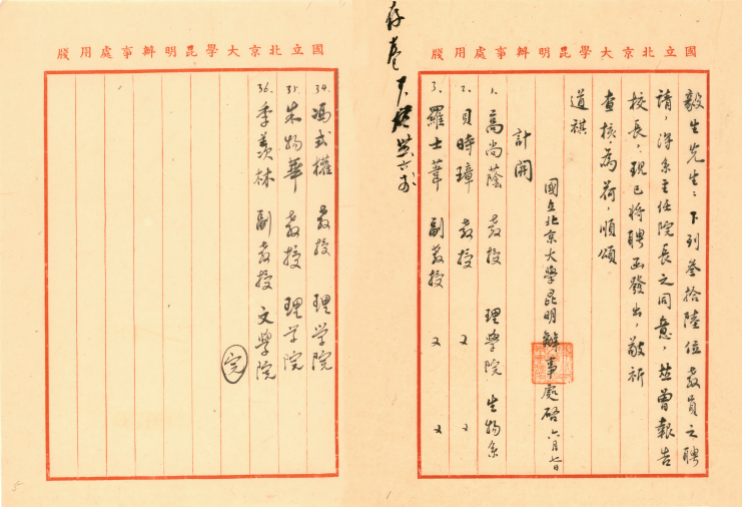 國立北京大學昆明辦事處用牋
毅生先生：下列叁拾陸位教員之聘
請，浔系主任院長之同意，並曾報告
校長，現已將聘函發出，敬祈
查核為荷，順頌
道祺
國立北京大學昆明辦事處啓 六月七日
計開
1. 高尚蔭 教授 理學院 生物系
2. 貝時璋 教授 〻 〻
3. 羅士葦 副教授 〻 〻
存卷
國立北京大學昆明辦事處用牋
34. 馮式權 教授 理學院
35. 朱物華 教授 理学院
36. 季羨林 副教授 文學院
完